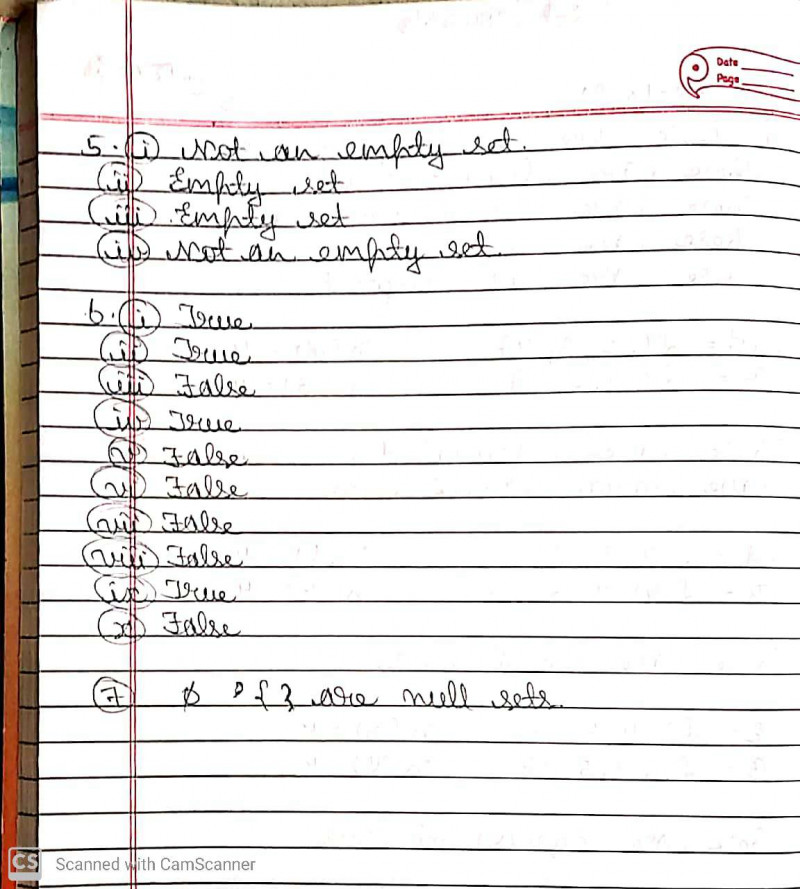 Date
Page
5. (i) Not an empty set.
(ii) Empty set
(iii) Empty set
(iv) Not an empty set.
6. (i) True
(ii) True
(iii) False
(iv) True
(v) False
(vi) False
(vii) False
(viii) False
(ix) True
(x) False
(7) ϕ , { } are null sets.
CS Scanned with CamScanner